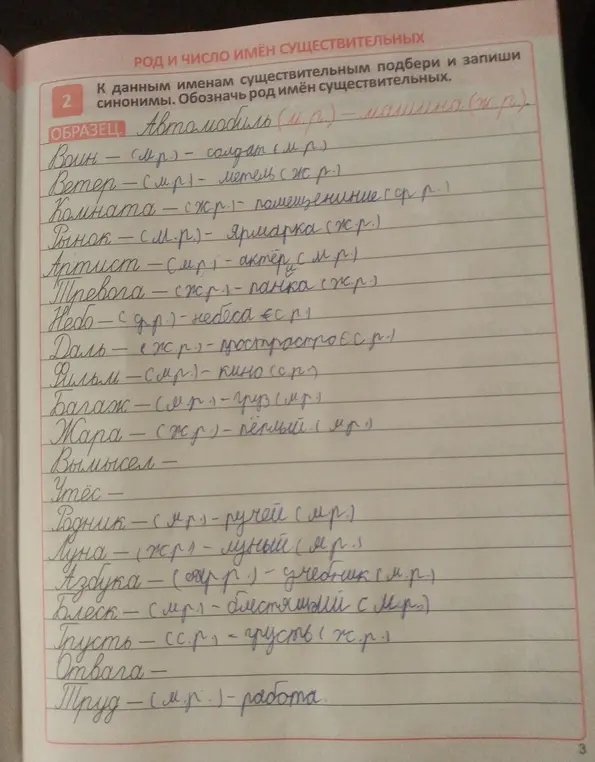 РОД И ЧИСЛО ИМЁН СУЩЕСТВИТЕЛЬНЫХ
2 К данным именам существительным подбери и запиши
синонимы. Обозначь род имён существительных.
ОБРАЗЕЦ Автомобиль (м.р.) – машина (ж.р.).
Воин – (м.р.) – солдат (м.р.)
Ветер – (м.р.) – метель (ж.р.)
Комната – (ж.р.) – помещениние (ср.р.)
Рынок – (м.р.) – Ярмарка (ж.р.)
Артист – (м.р.) – актёр (м.р.)
Тревога – (ж.р.) – паника (ж.р.)
Небо – (с.р.) – небеса (с.р.)
Даль – (ж.р.) – (с.р.)
Фильм – (м.р.) – кино (с.р.)
Багаж – (м.р.) – груз (м.р.)
Жара – (ж.р.) – тёплый (м.р.)
Вымысел –
Утёс –
Родник – (м.р.) – ручей (м.р.)
Луна – (ж.р.) – луный (м.р.)
Азбука – – учебник (м.р.)
Блеск – (м.р.) – блестящий (м.р.)
Грусть – (с.р.) – грусть (ж.р.)
Отвага –
Труд – (м.р.) – работа.
3